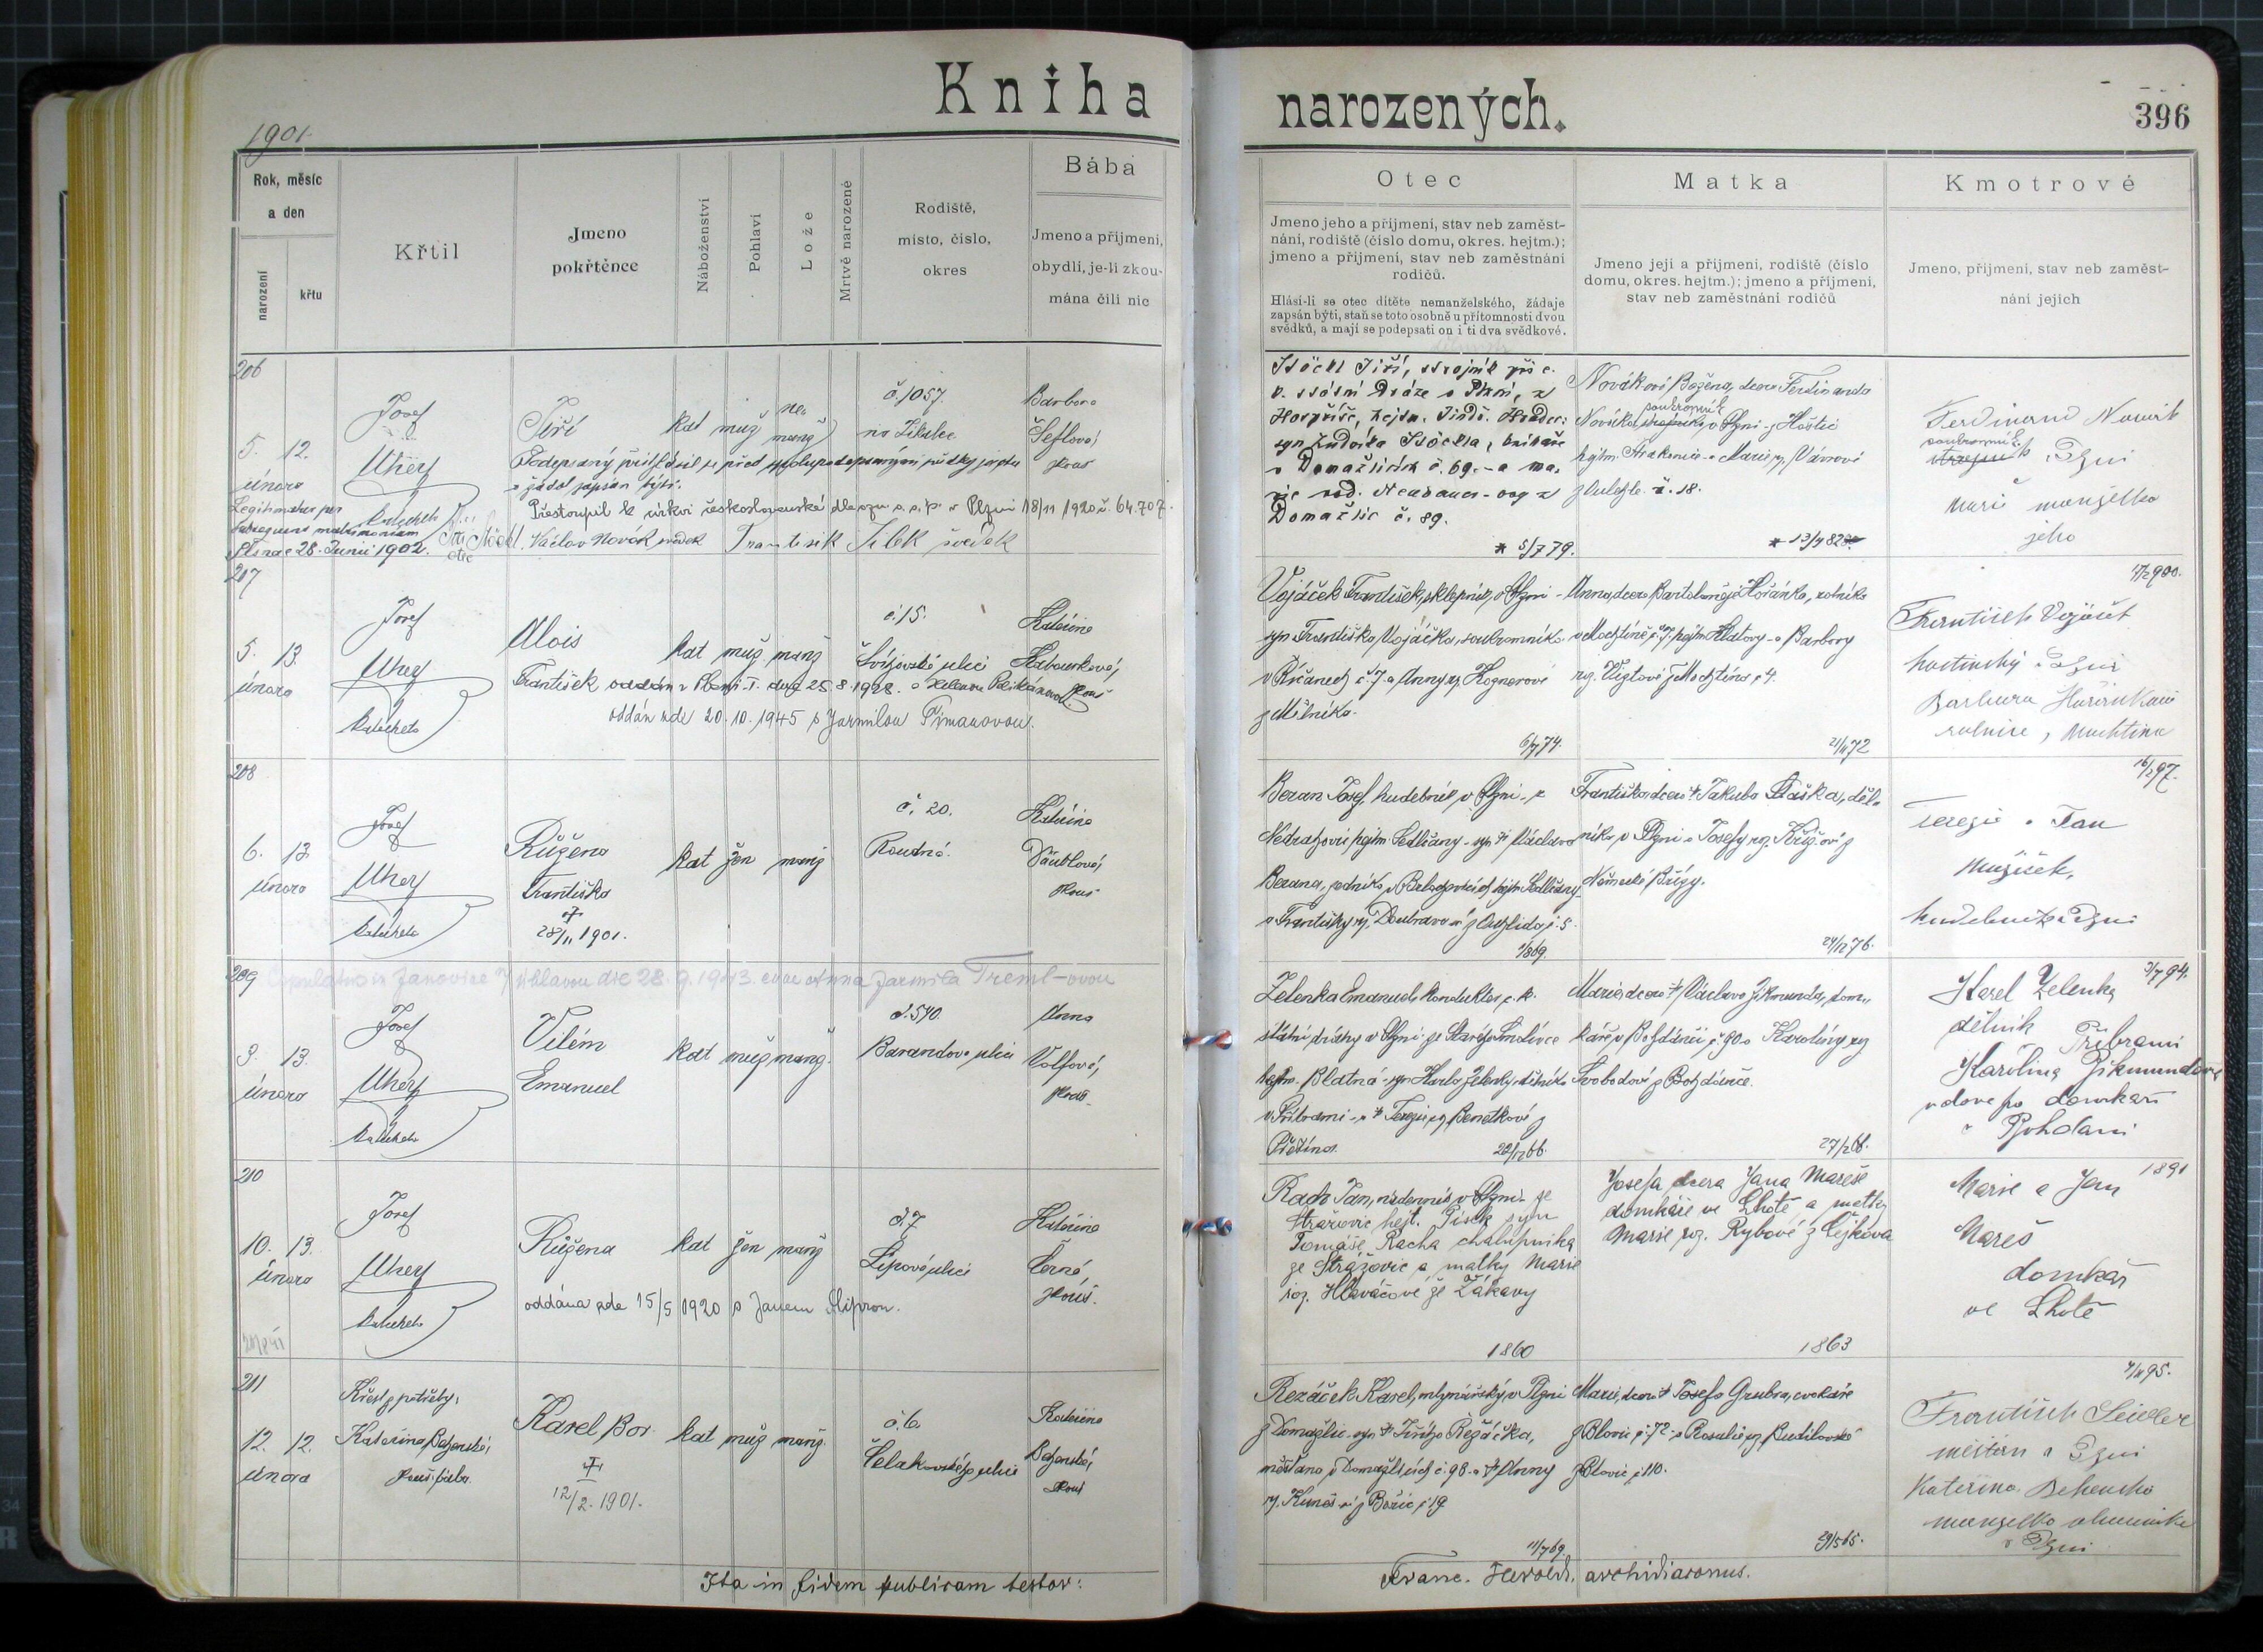 Kniha
narozených.
396
1901.
Rok, měsíc
a den
narození
křtu
Křtil
Jmeno
pokřtěnce
Náboženství
Pohlaví
Lože
Mrtvě narozené
Rodiště,
místo, číslo,
okres
Bába
Jmeno a příjmení,
obydlí, je-li zkou-
mána čili nic
Otec
Jmeno jeho a příjmení, stav neb zaměst-
nání, rodiště (číslo domu, okres. hejtm.);
jmeno a příjmení, stav neb zaměstnání
rodičů.
Hlásí-li se otec dítěte nemanželského, žádaje
zapsán býti, staň se toto osobně u přítomnosti dvou
svědků, a mají se podepsati on i ti dva svědkové.
Matka
Jmeno její a příjmení, rodiště (číslo
domu, okres. hejtm.); jmeno a příjmení,
stav neb zaměstnání rodičů
Kmotrové
Jmeno, příjmení, stav neb zaměst-
nání jejich
206
5. 12.
února
Josef
Uherý
katecheta
Jiří
kat muž nemanž
č. 1057.
Barbora
Šeflová,
zkouš
Podepsaný přihlásil se před spolupodepsanými svědky
a žádal zapsán býti.
Přestoupil k církvi československé dle ozn. o. s. p. v Plzni 18/11 1920 č. 64.707.
Legitimatus per
subsequens matrimonium
Plsnae 28. Junii 1902.
Jiří Stöckl. Václav Novák svědek František Jílek svědek
otec
Stöckl Jiří, strojník při c.
k. státní dráze v Plzni, z
hejtm. Jindř. Hradec;
syn Ludvíka Stöckla,
v Domažlicích č. 69. - a Ma-
rie roz. z
Domažlic č. 89.
* 5/7 79.
Nováková Božena, dcera Ferdinanda
Nováka, soukromníka v Plzni - z Hoštic
hejtm. Strakonice - a Marie roz. Vávrové
č. 18.
* 13/7 82
Ferdinand Novák
soukromník v Plzni
Marie manželka
jeho
17/2 900.
207
5. 13.
února
Josef
Uherý
katecheta
Alois
František
kat muž manž
č. 15.
ulici
Kateřina
zkouš
oddán v Plzni I. dne 25. 8. 1928. s Helenou Pelikánovou
oddán zde 20. 10. 1945 s Jarmilou Šimanovou.
Vojáček František, sklepník, v Plzni -
syn Františka Vojáčka, soukromníka
v Říčanech č. 7. a Anny roz. Kognerové
z Mělníka.
6/7 74.
Anna, dcera Bartoloměje Hořánka, rolníka
v Mochtíně č. 7. hejtm. Klatovy - a Barbory
roz. Vigtové z Mochtína č. 4.
21/11 72
František Vojáček
hostinský v Plzni
Barbora
rolnice, Mochtína
16/2 97.
208
6. 13.
února
Josef
Uherý
katecheta
Růžena
Františka
†
28/11 1901.
kat žen manž
č. 20.
Roudná.
Kateřina
Däublová,
zkouš
Beran Josef, hudebník, v Plzni - z
hejtm. Sedlčany - syn † Václava
Berana, rolníka hejtm. Sedlčany
a Františky roz. Doubravové z č. 5.
1869.
Františka, dcera † Jakuba Šaška, děl-
níka, v Plzni a Josefy roz. Křížové z
Německé Břízy.
24/12 76.
Terezie a Jan
Mužíček,
hudebník v Plzni
3/7 94.
209 Copulatus in Janovice n/Uhlavou die 28. 9. 1943. cum Anna Jarmila Treml-ovou
3. 13.
února
Josef
Uherý
katecheta
Vilém
Emanuel
kat muž manž.
č. 540.
Barandova ulice
Anna
Volfová,
zkouš.
Zelenka Emanuel, kondukter c. k.
státní dráhy v Plzni - ze Starého Smolivce
hejtm. Blatná - syn Karla Zelenky, dělníka
v Příbrami - a † Terezie roz. Benetkové z
22/12 66.
Marie, dcera † Václava Zikmunda, dom-
káře v Bohdánči č. 90. a Karolíny roz.
Svobodové z Bohdánče.
27/2 68.
Karel Zelenka
dělník Příbrami
Karolina Zikmundová
vdova po domkáři
v Bohdani
1891
210
10. 13.
února
Josef
Uherý
katecheta
Růžena
kat žen manž
č. 7
Lipová ulice
Kateřina
Černá
zkouš.
oddána zde 15/5 1920 s Janem
Rach Jan, nádenník v Plzni - ze
Stražovic hejt. Písek syn
Tomáše Racha chalupníka
ze Strážovic a matky Marie
roz. Hlaváčové ze Žákavy
1860
Josefa dcera Jana Mareše
domkáře ve Lhotě a matky
Marie roz. Rybové z Čížkova
1863
Marie a Jan
Mareš
domkář
ve Lhotě
4/11 95.
211
12. 12.
února
Křest z potřeby:
Kateřina Behenská,
zkouš. bába
Karel Bor.
†
12/2. 1901.
kat muž manž.
č. 6.
Čelakovského ulice
Kateřina
Behenská,
zkouš
Řezáček Karel, mlynářský, v Plzni
z Domažlic - syn † Jiřího Řezáčka,
měšťana v Domažlicích č. 98. a † Anny
roz. z č. 19
11/7 69.
Marie, dcera † Josefa Grubra, cvokáře
z Blovic č. 72. a Rosalie roz. Budilovské
z Blovic č. 110.
29/5 65.
František Seidler
měšťan v Plzni
Kateřina Behenská
manželka
v Plzni
Ita in fidem publicam testor:
Franc. Herold, archidiaconus.